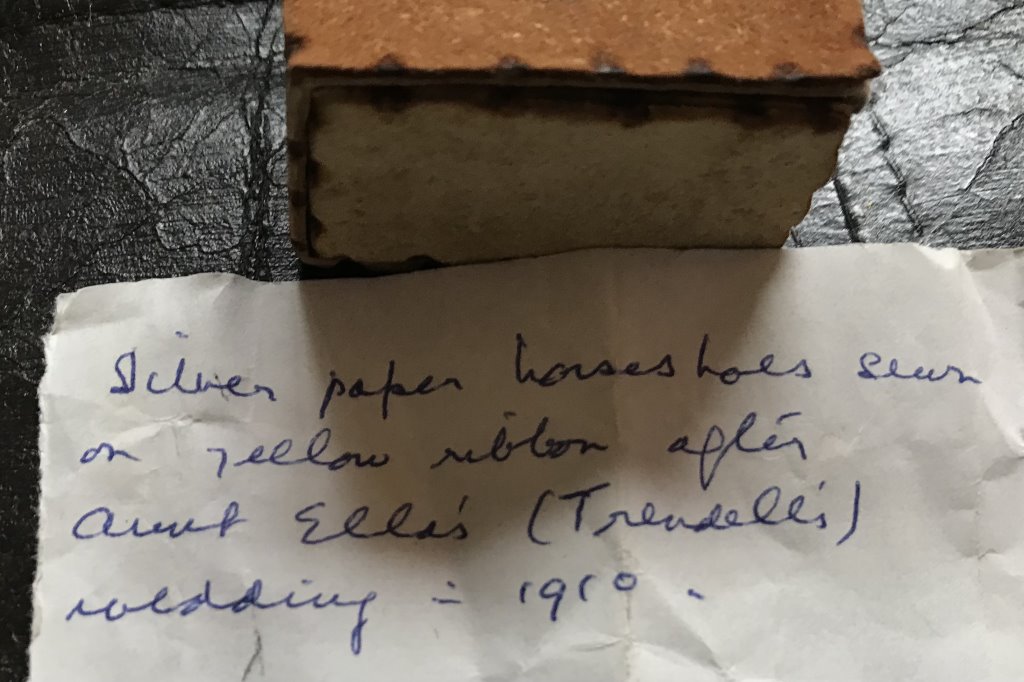 Silver paper horseshoes sewn
on yellow ribbon after
Aunt Ella's (Trendell's)
wedding - 1910.